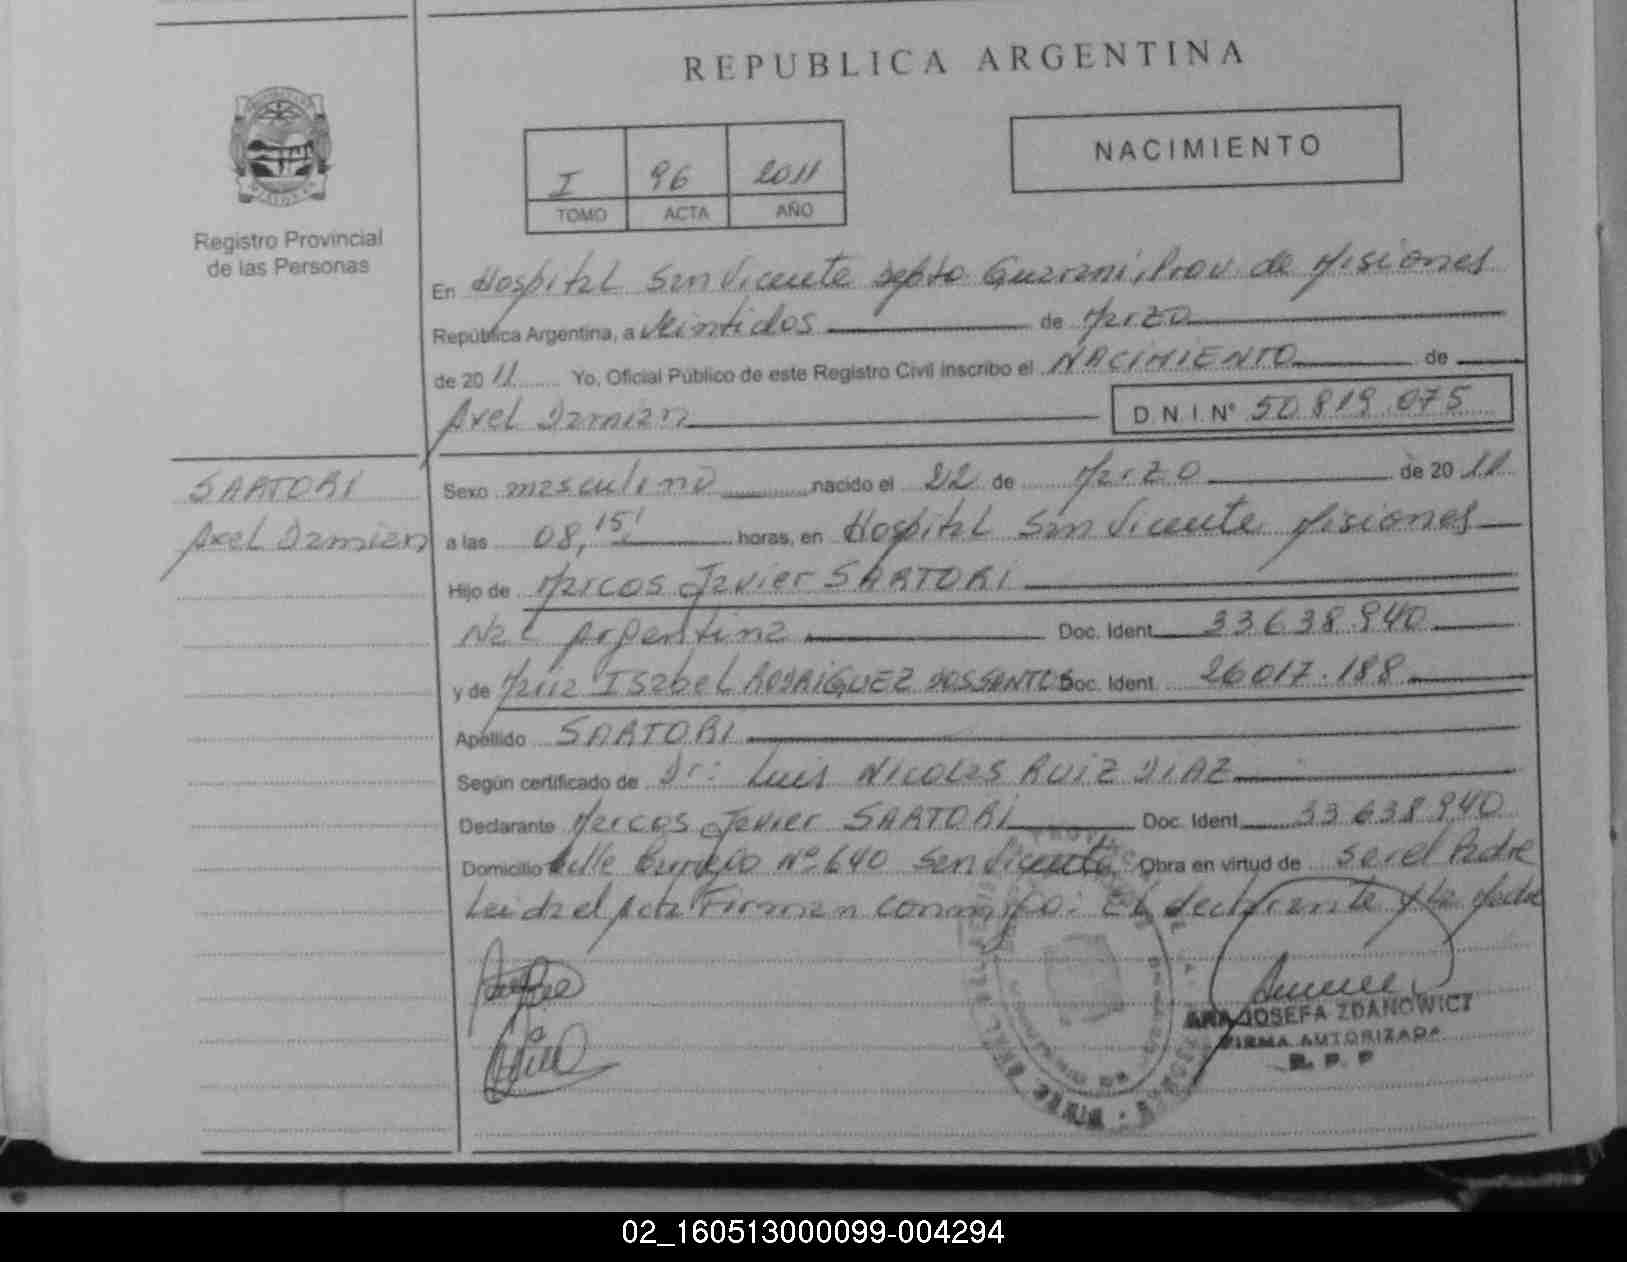 REPUBLICA ARGENTINA
NACIMIENTO
I 96 2011
TOMO ACTA AÑO
Registro Provincial
de las Personas
En Hospital San Vicente Depto Guarani, Prov de Misiones
República Argentina, a Veintidos de Marzo
de 20 11 Yo, Oficial Público de este Registro Civil inscribo el NACIMIENTO de
Axel Damian D.N.I. N° 50.819.075
SARTORI
Axel Damian
Sexo masculino nacido el 22 de Marzo de 20 11
a las 08,15' horas, en Hospital San Vicente Misiones
Hijo de Marcos Javier SARTORI
Nac Argentina Doc. Ident. 33.638.940
y de Maria Isabel RODRIGUEZ DOSSANTOS Doc. Ident. 26017.188
Apellido SARTORI
Según certificado de Dr: Luis Nicolas RUIZ DIAZ
Declarante Marcos Javier SARTORI Doc. Ident. 33.638.940
Domicilio Calle N° 640 San Vicente Obra en virtud de ser el Padre
Leida el Acta Firman conmigo: El declarante y la Madre
ANA JOSEFA ZDANOWICZ
FIRMA AUTORIZADA
R. P. P
02_160513000099-004294